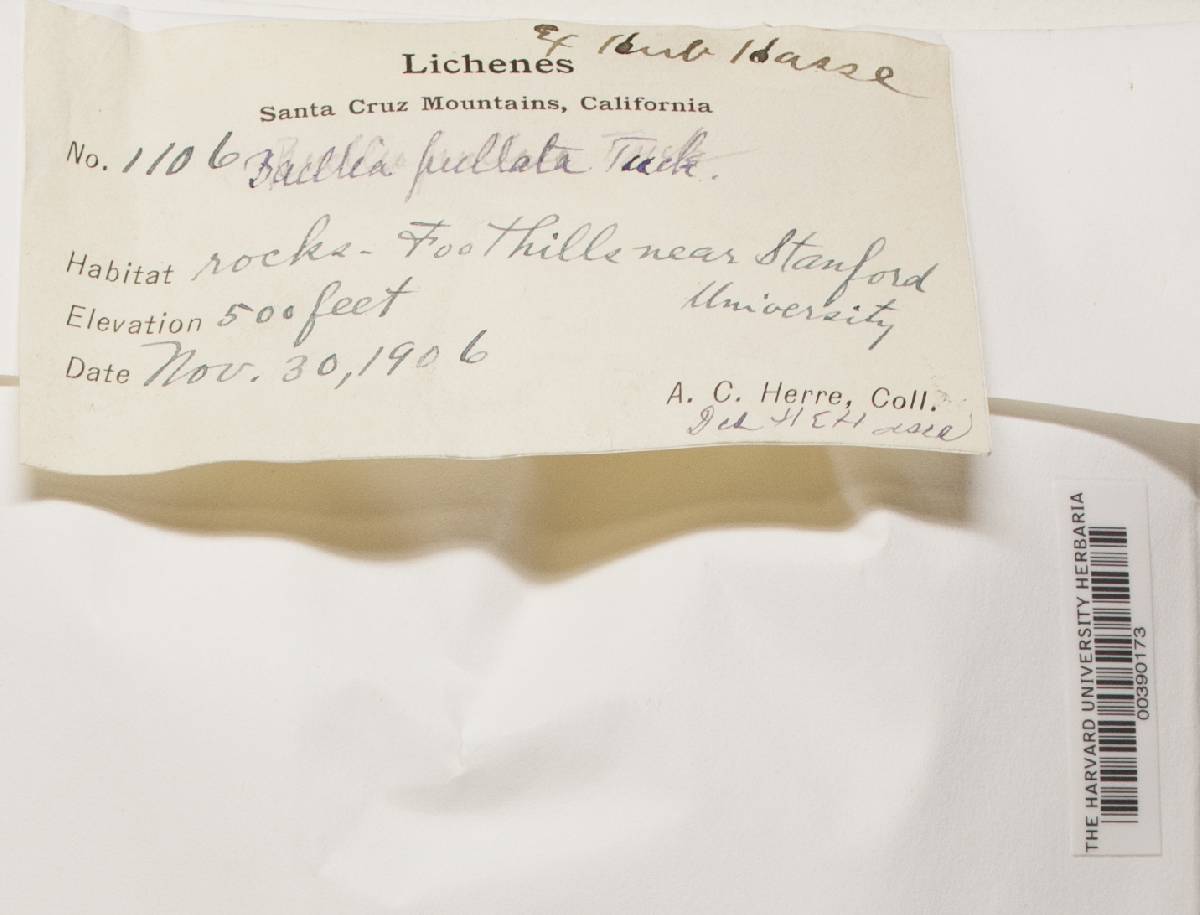 Ex Herb Hasse
Lichenes
Santa Cruz Mountains, California
No. 1106 Buellia pullata Tuck.
Habitat rocks - Foothills near Stanford
University
Elevation 500 feet
Date Nov. 30, 1906
A. C. Herre, Coll.
Det H E Hasse
THE HARVARD UNIVERSITY HERBARIA
00390173